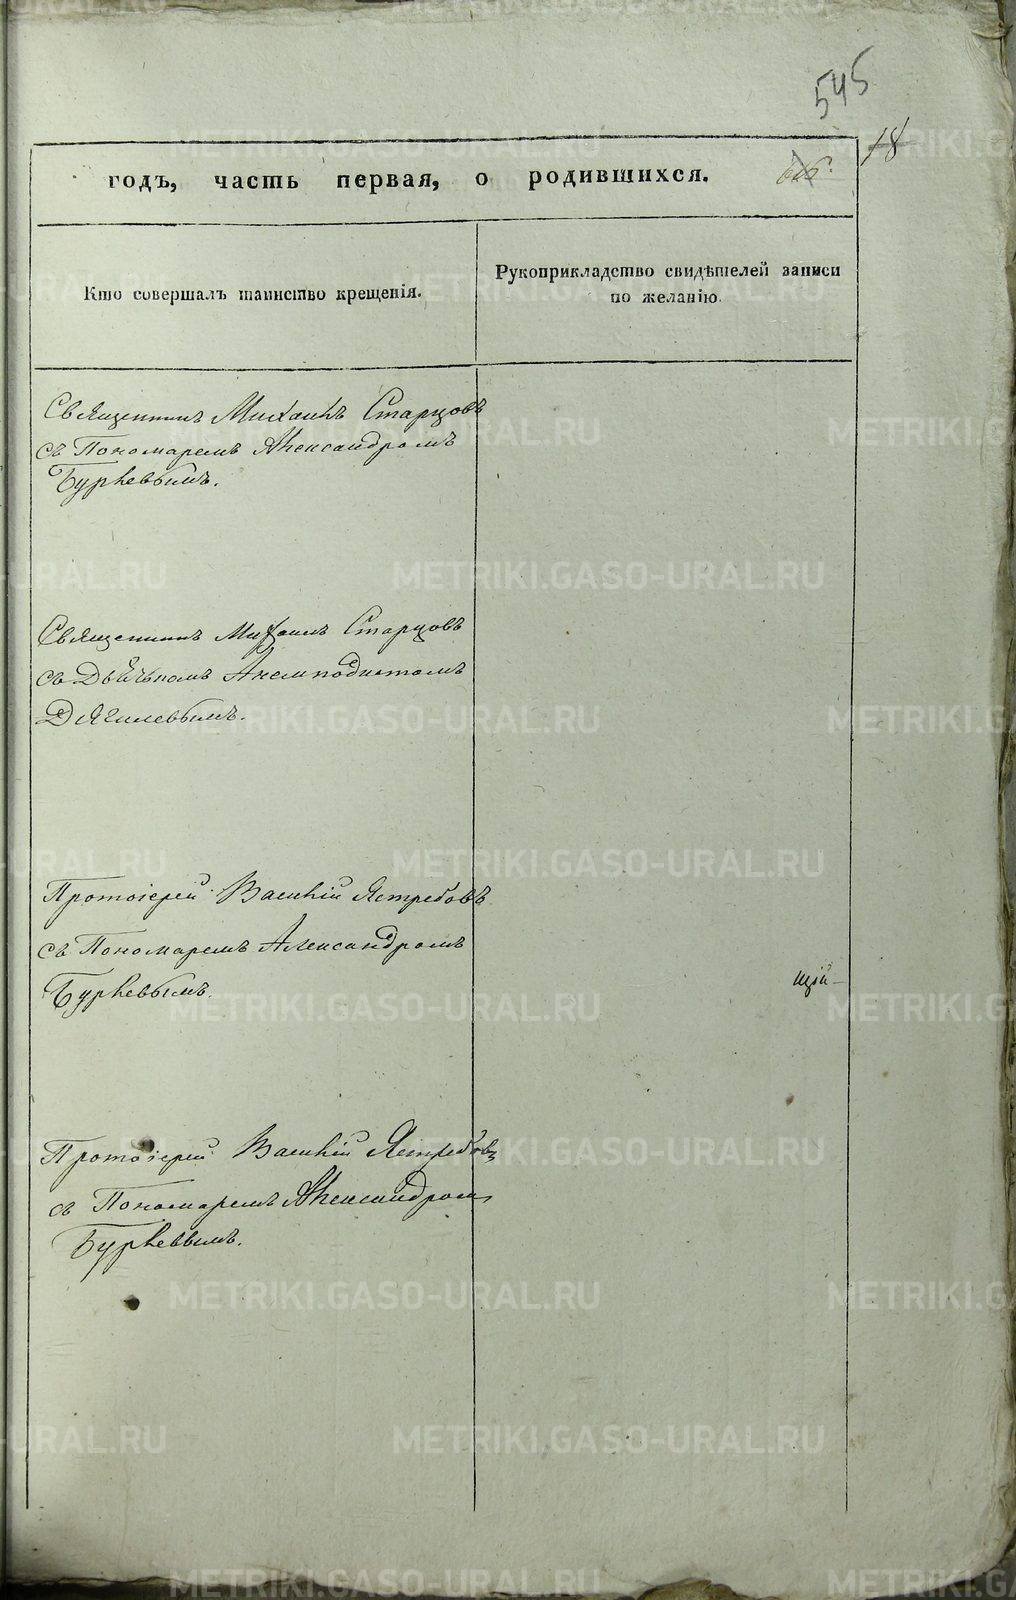 545
18
годъ, часть первая, о родившихся.
Кто совершалъ таинство крещенія.
Рукоприкладство свидѣтелей записи
по желанію.
Священникъ Михаилъ Старцовъ
съ Пономаремъ Александромъ
Бурневымъ.
Священникъ Михаилъ Старцовъ
съ Дьячькомъ Акемподистомъ
Дягилевымъ.
Протоіерей Василій Ястребовъ
съ Пономаремъ Александромъ
Бурневымъ.
щій
Протоіерей Василій Ястребовъ
съ Пономаремъ Александромъ
Бурневымъ.
METRIKI.GASO-URAL.RU